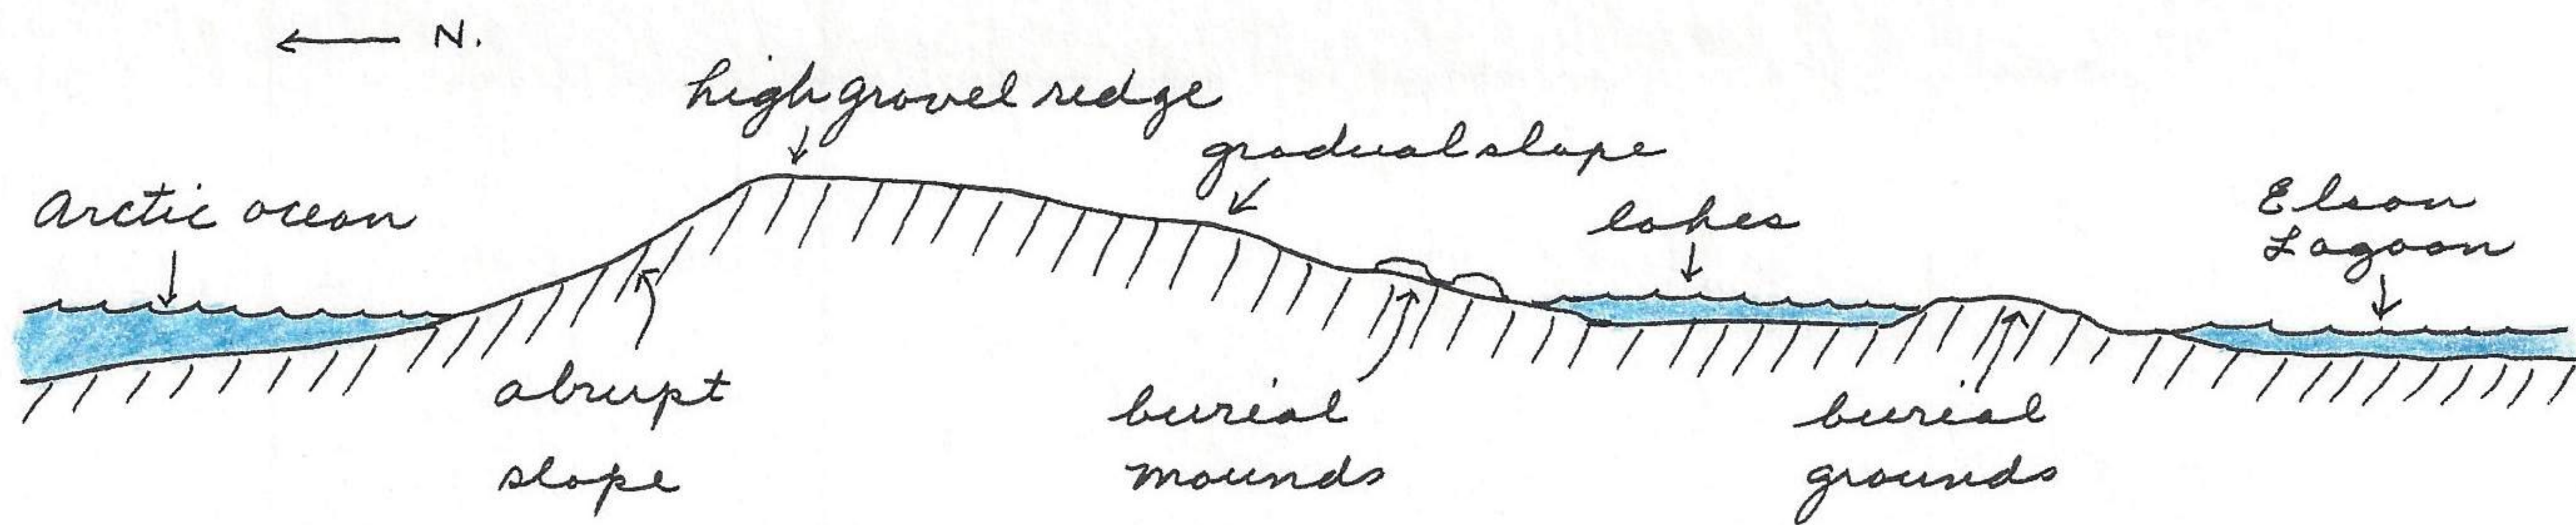 N.
high gravel ridge
gradual slope
Arctic ocean
lakes
Elson
Lagoon
abrupt
slope
burial
mounds
burial
grounds